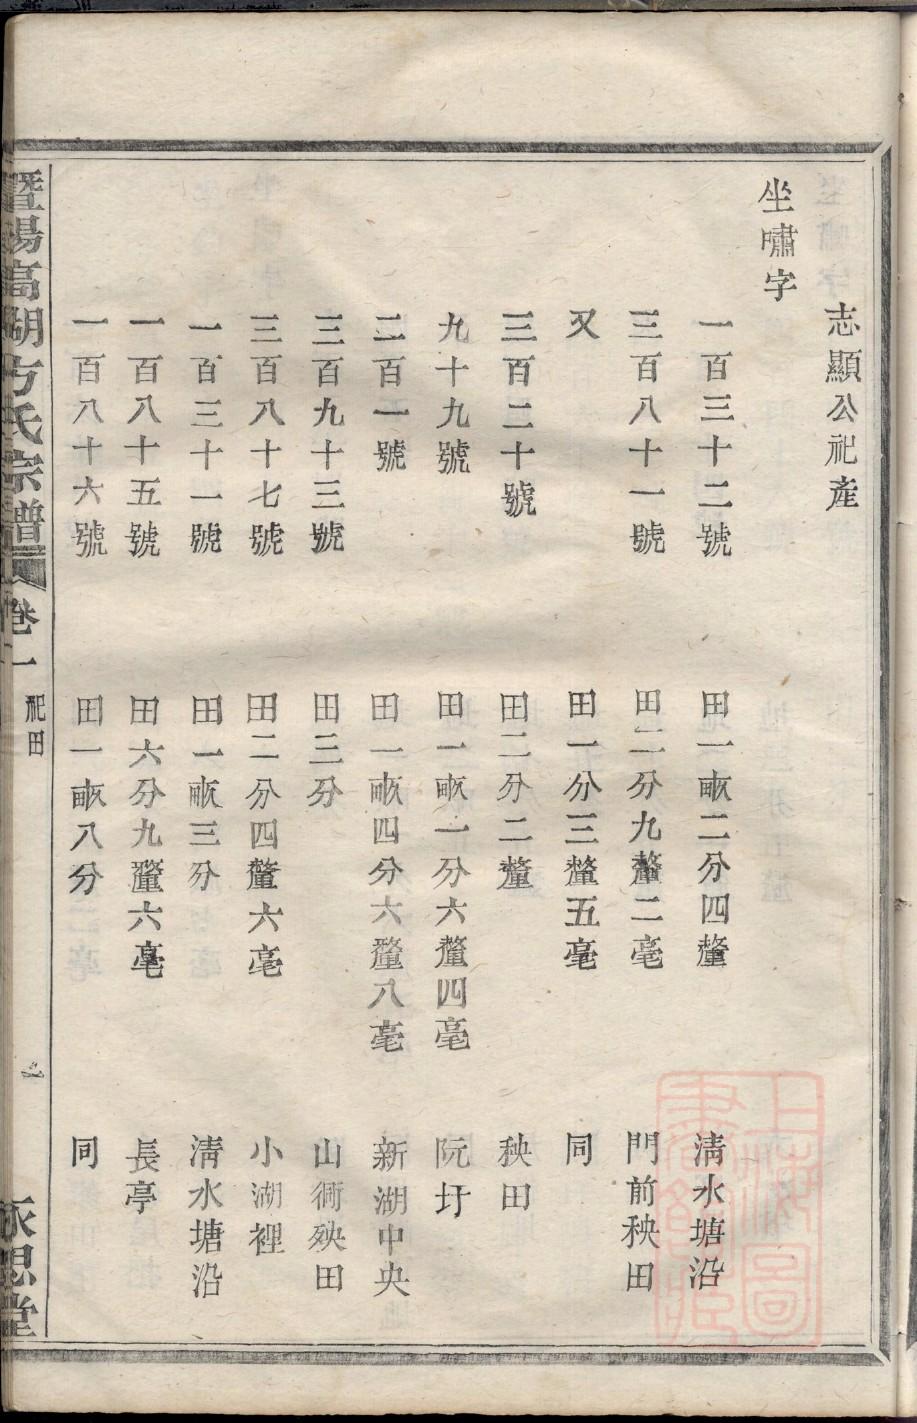 志顯公祀產
坐嘯字
一百三十二號 田一畝二分四釐 淸水塘沿
三百八十一號 田二分九釐二毫 門前秧田
又 田一分三釐五毫 同
三百二十號 田二分二釐 秧田
九十九號 田一畝一分六釐四毫 阮圩
二百一號 田一畝四分六釐八毫 新湖中央
三百九十三號 田三分 山衕殃田
三百八十七號 田二分四釐六毫 小湖裡
一百三十一號 田一畝三分 淸水塘沿
一百八十五號 田六分九釐六毫 長亭
一百八十六號 田一畝八分 同
暨陽高湖方氏宗譜 卷一 祀田 永思堂